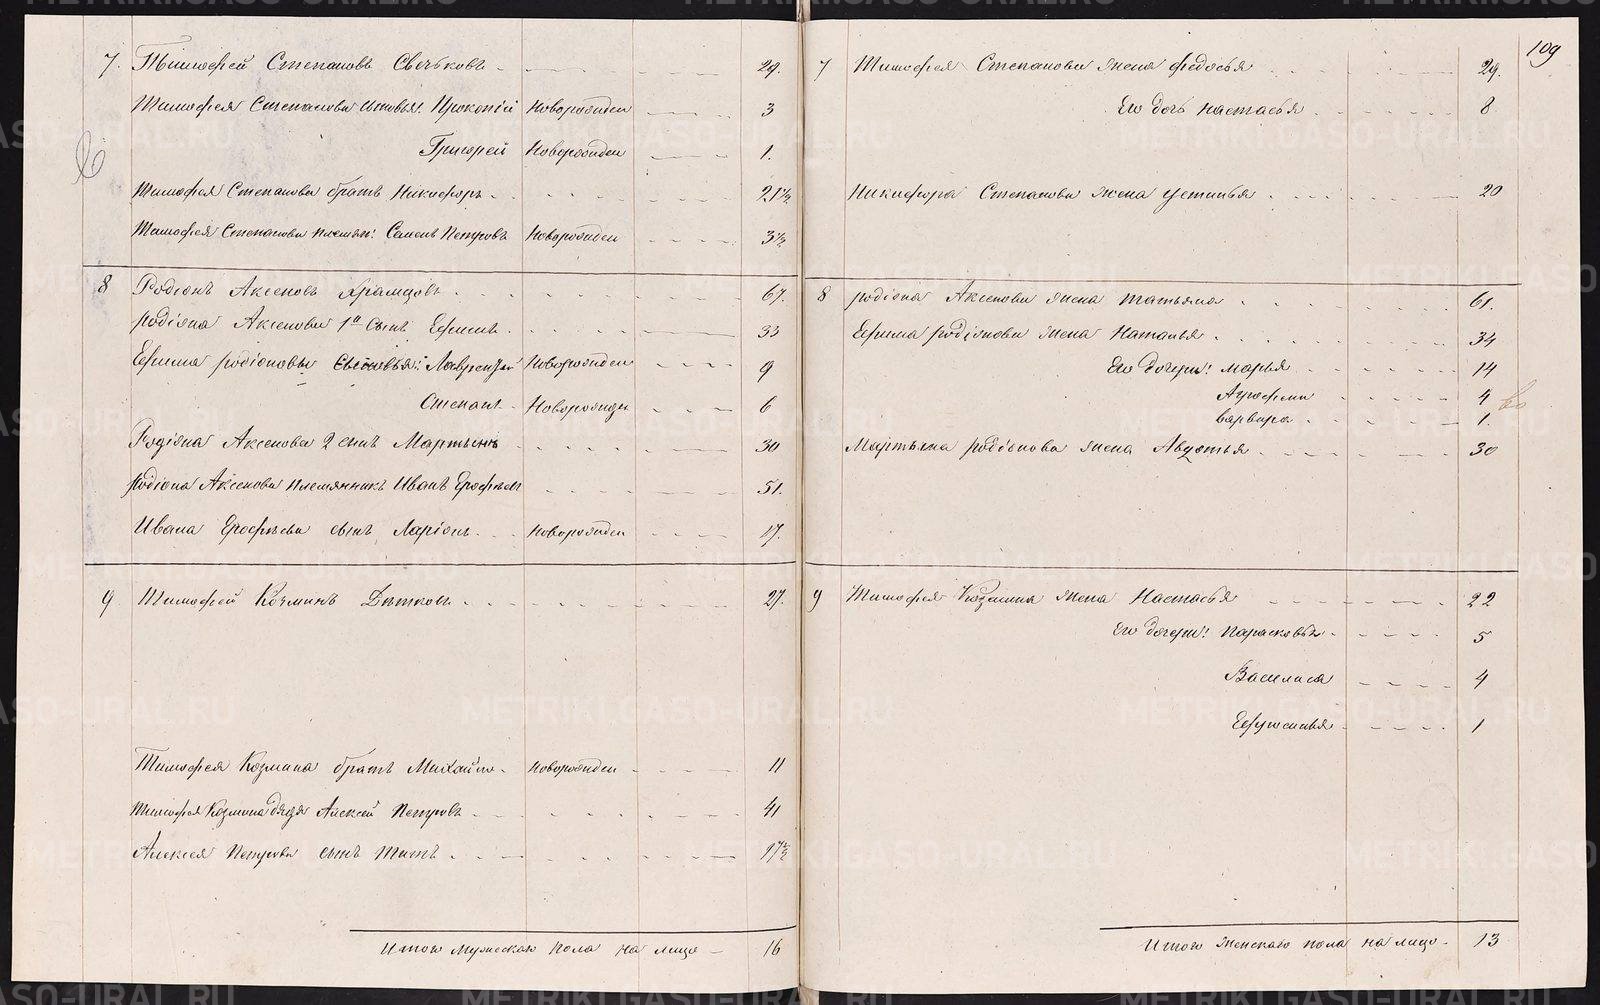 109
7. Тимофей Степановъ Свечьковъ 29.
Тимофея Степанова сыновья: Прокопiй Новорожден 3
Григорей Новорожден 1.
Тимофея Степанова братъ Никифоръ 21½
Тимофея Степанова племян: Семенъ Петровъ Новорожден 3½
8 Родiонъ Аксеновъ Храмцовъ 67.
Родiона Аксенова 1й сынъ Ефимъ 33
Ефима Родiонова сыновья: Лаврентий Новорожден 9
Степанъ Новорожден 6
Родiона Аксенова 2 сынъ Мартынъ 30
Родiона Аксенова племянникъ Иванъ Ерофѣевъ 51.
Ивана Ерофѣева сынъ Ларiонъ Новорожден 17.
9 Тимофей Козминъ Дѣтковъ 27.
Тимофея Козмина братъ Михайло Новорожден 11
Тимофея Козмина дядя Алексей Петровъ 41
Алексея Петрова сынъ Титъ 17½
Итого мужескаго пола на лицо 16
7 Тимофея Степанова жена Федосья 29.
Его дочь Настасья 8
Никифора Степанова жена Устинья 20
8 Родiона Аксенова жена Татьяна 61.
Ефима Родiонова жена Наталья 34
Его дочери: Марья 14
Агрофена 4
Варвара 1.
Мартына Родiонова жена Авдотья 30
9 Тимофея Козмина жена Настасья 22
Его дочери: Парасковья 5
Василиса 4
Ефросинья 1
Итого женскаго пола на лицо 13
METRIKI.GASO-URAL.RU